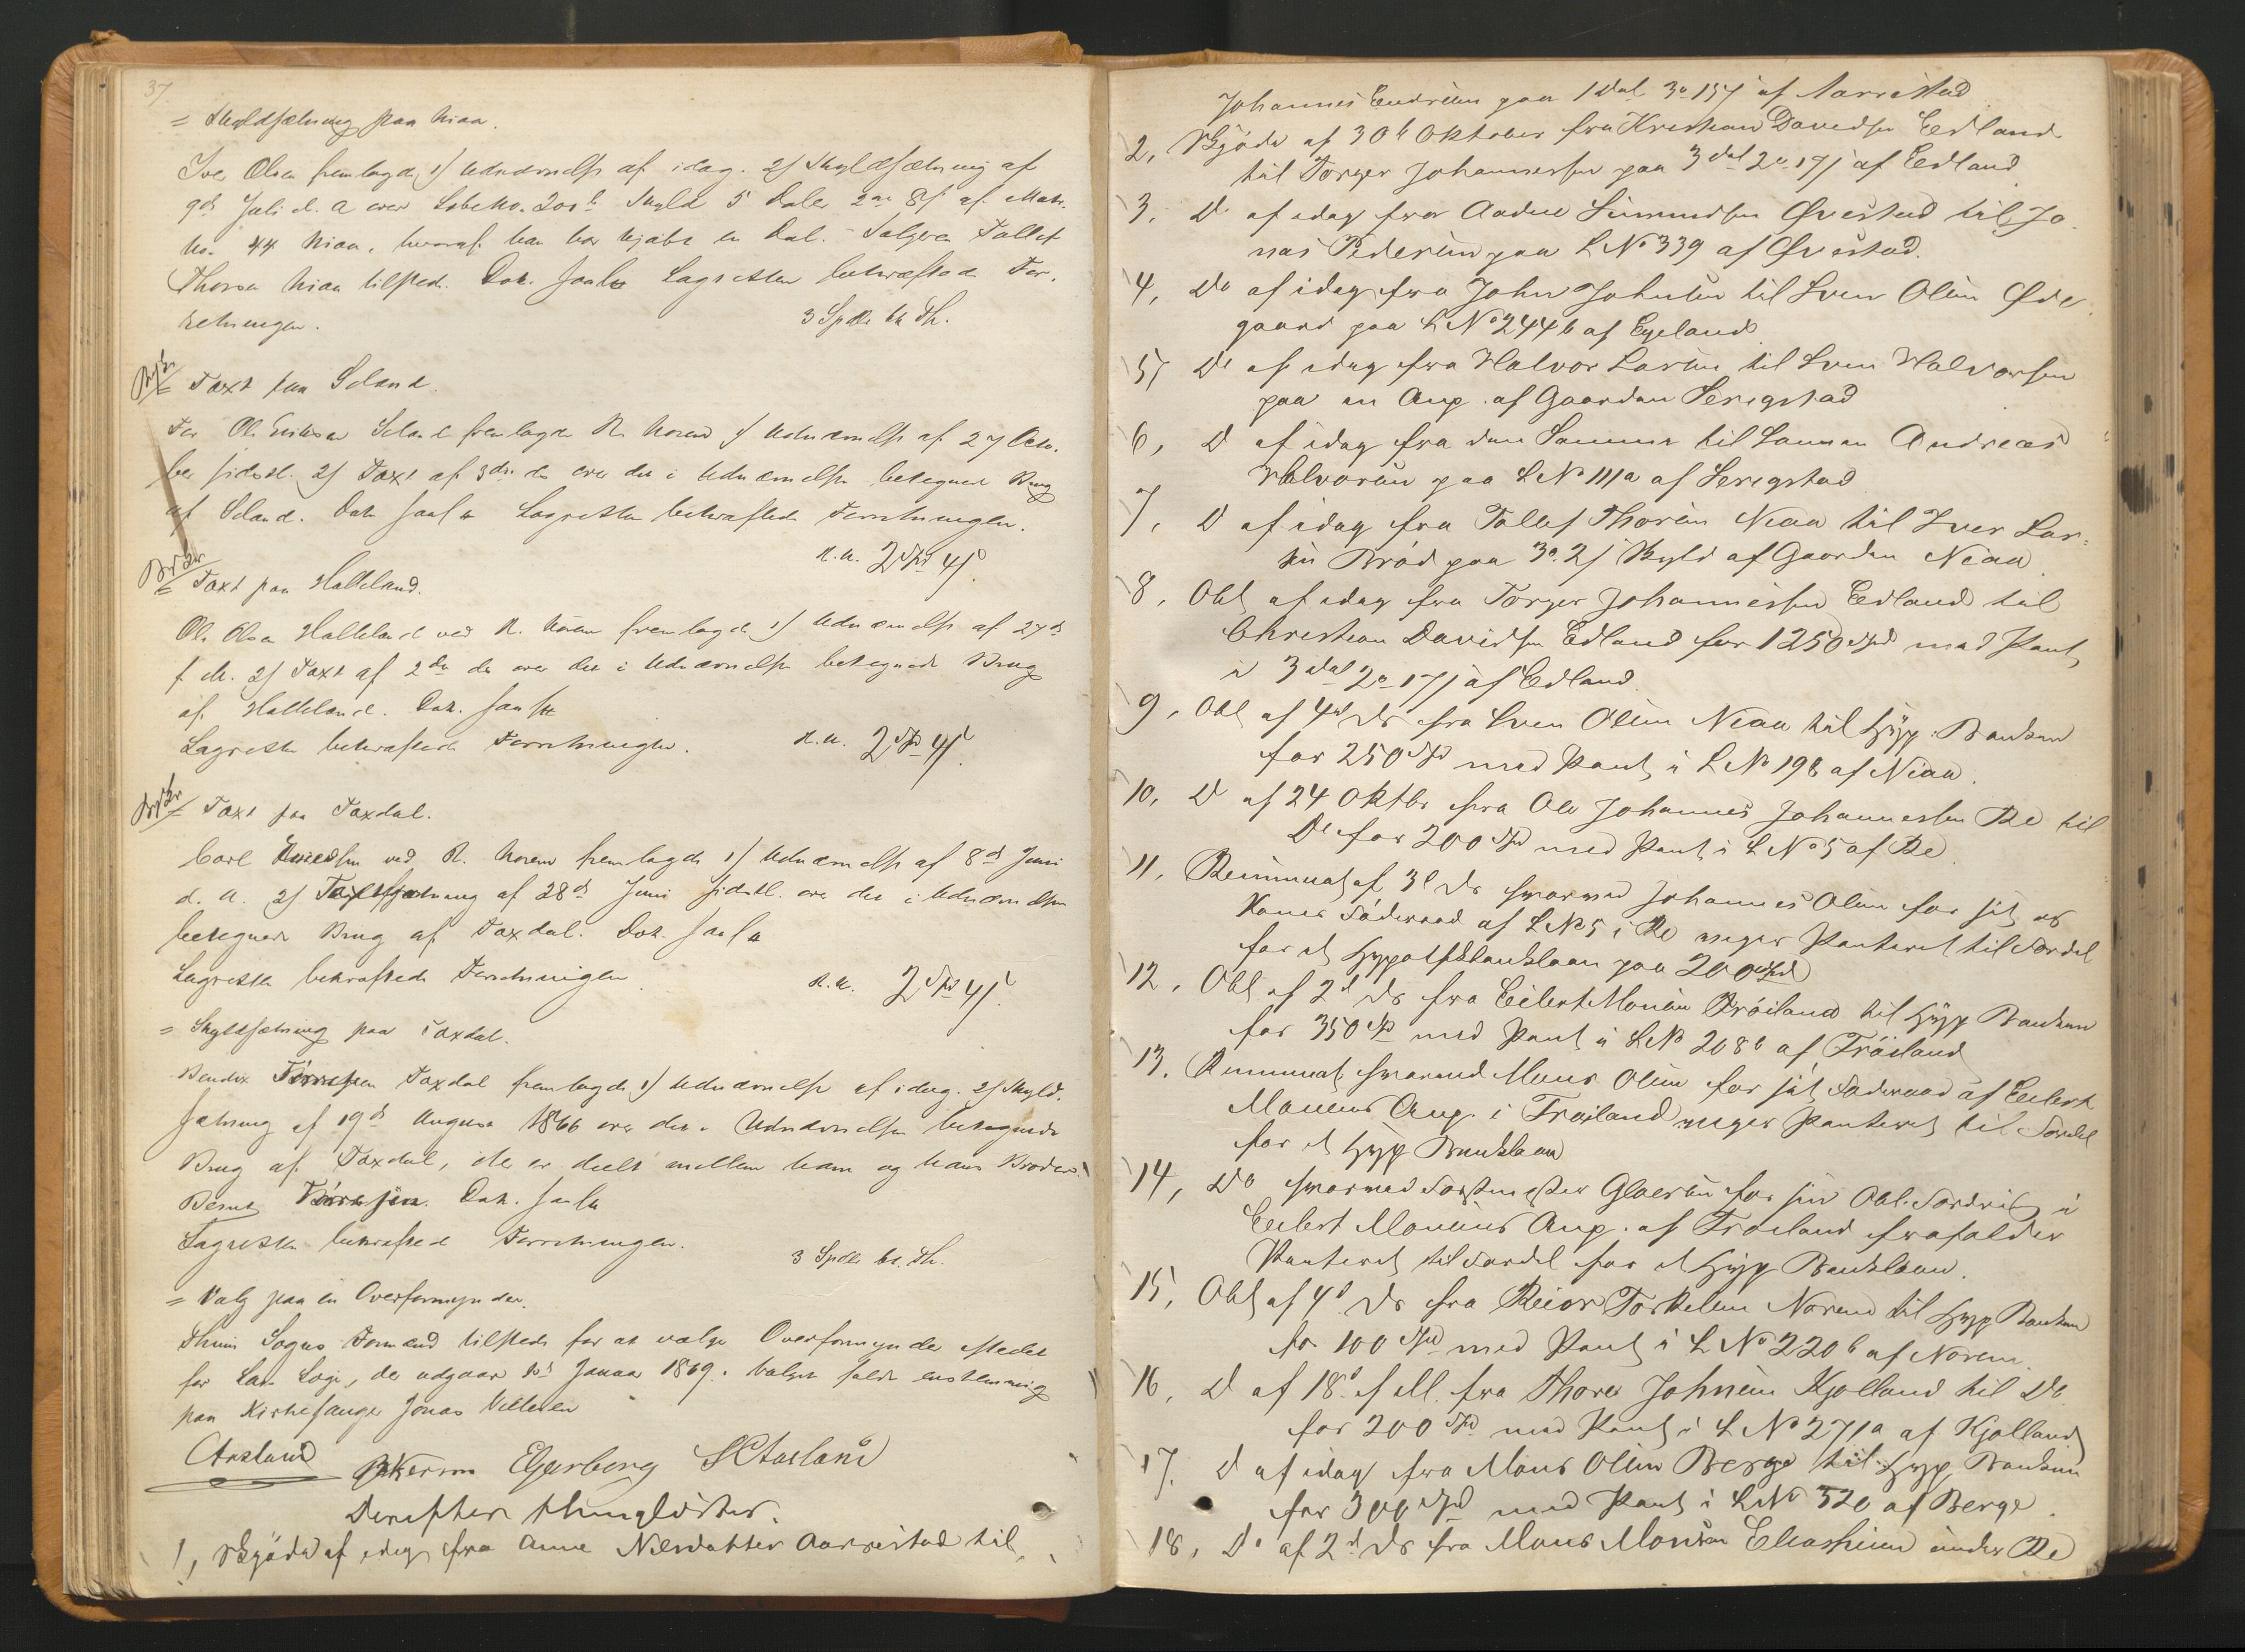 37.
= Skyldsætning paa Niaa.
Iver Olsen fremlagde 1/ Udnævnelse af idag. 2/ Skyldsætning af
9de Juli d. A over Løbe No. 200b Skyld 5 Daler 2 ort 8 s af Matr.
No. 44 Niaa, hvoraf han har kjøbt en Dal. - Sælgeren Tallef
Thorsen Niaa tilstede. Dok. saal. Lagretten bekræftede For-
retningen. 3 Spdlr bt. Th.
= Taxt paa Seland.
For Ole Eriksen Seland fremlagde R. Noreim 1/ Udnævnelse af 27 Octo-
ber sidstl. 2/ Taxt af 3die ds over det i Udnævnelsen betegnede Brug
af Seland. Dok saal. Lagretten bekræftede Forretningen.
R.N. 2 Spd 4 s.
= Taxt paa Halleland.
Ole Olsen Halleland ved R. Noreim fremlagde 1/ Udnævnelse af 27de
f. M. 2/ Taxt af 2den ds over det i Udnævnelsen betegnede Brug
af Halleland. Dok. saal.
Lagretten bekræftede Forretningen. R.N. 2 Spd 4 s.
= Taxt paa Taxdal.
Carl ved R. Noreim fremlagde 1/ Udnævnelse af 8de Juni
d. A. 2/ af 28de Juni sidstl. over det i Udnævnelsen
betegnede Brug af Taxdal. Dok. saal.
Lagretten bekræftede Forretningen. R.N. 2 Spd 4 s.
= Skyldsætning paa Taxdal.
Bendix Tørresen Taxdal fremlagde 1/ Udnævnelse af idag. 2/ Skyld-
sætning af 19de August 1866 over det i Udnævnelsen betegnede
Brug af Taxdal, der er deelt mellem ham og hans Broder
Bernt Tørresen. Dok. saal.
Lagretten bekræftede Forretningen. 3 Spdlr bt. Th.
= Valg paa en Overformynder.
Thime Sogns Formænd tilstede for at vælge Overformynder istedet
for Lars Løge, der udgaar 1ste Januar 1869. Valget faldt enstemmig
paa Kirkesanger Jonas Vellesen
Aasland Egerberg S Aasland
Derefter thinglæstes.
1, Skjøde af idag fra Anne Nilsdatter Aarrestad til
Johannes Endresen paa 1 Dal. 3 o 15 s af Aarrestad
2, Skjøde af 30te Oktober fra Kristian Davidsen Edland
til Torger Johannessen paa 3 dal 2 o 17 s af Edland
3, Do af idag fra Aadne Simundsen Øvestad til Jo
nas Pedersen paa L No 339 af Øvestad.
4, Do af idag fra John Johnsen til Sven Olsen Øde
gaard paa L No 244b af Egeland
5, Do af idag fra Halvor Larsen til Sven Halvorsen
paa en Anp. af Gaarden Serigstad
6, Do af idag fra den Samme til Sønnen Andreas
Halvorsen paa L No 111a af Serigstad
7, Do af idag fra Tallef Thorsen Niaa til Iver Lar-
sen Brød paa 3 o. 2 s Skyld af Gaarden Niaa
8, Obl af idag fra Torger Johannessen Edland til
Christian Davidsen Edland for 1250 Spd med Pant
i 3 dal 2 o 17 s af Edland
9, Obl af 4de Ds fra Sven Olsen Niaa til Hyp. Banken
for 250 Spd med Pant i L No 198 af Niaa.
10, Do af 24 Oktbr fra Ole Johannes Johannessen Re til
Do for 200 Spd med Pant i L No 5 af Re
11, af 3d Ds hvorved Johannes Olsen for sit og
Kones Føderaad af L No 5 i Re viger Panteret til Fordel
for et Hypothekbanklaan paa 200 Spd
12, Obl af 2d Ds fra Eilert Monsen Frøiland til Hyp Banken
for 350 Spd med Pant i L No 208b af Frøiland
13, hvorved Mons Olsen for sit Føderaad af Eilert
Monsens Anp. i Frøiland viger Panteret til Fordel
for et Hyp Banklaan
14, Do hvorved Forstmester Gløersen for sin Obl. Fordring i
Eilert Monsens Anp. af Frøiland frafalder
Panteret til Fordel for et Hyp Banklaan.
15, Obl af 4d Ds fra Reior Torkelsen Noreim til Hyp Banken
for 100 Spd med Pant i L No 220b af Noreim.
16, Do af 18d f. M. fra Thore Johnsen Kjølland til Do
for 200 Spd med Pant i L No 271a af Kjølland
17. Do af idag fra Mons Olsen Berge til Hyp Banken
for 300 Spd med Pant i L No 320 af Berge.
18, Do af 2d Ds fra Mons Monsen Eliasheim under Re